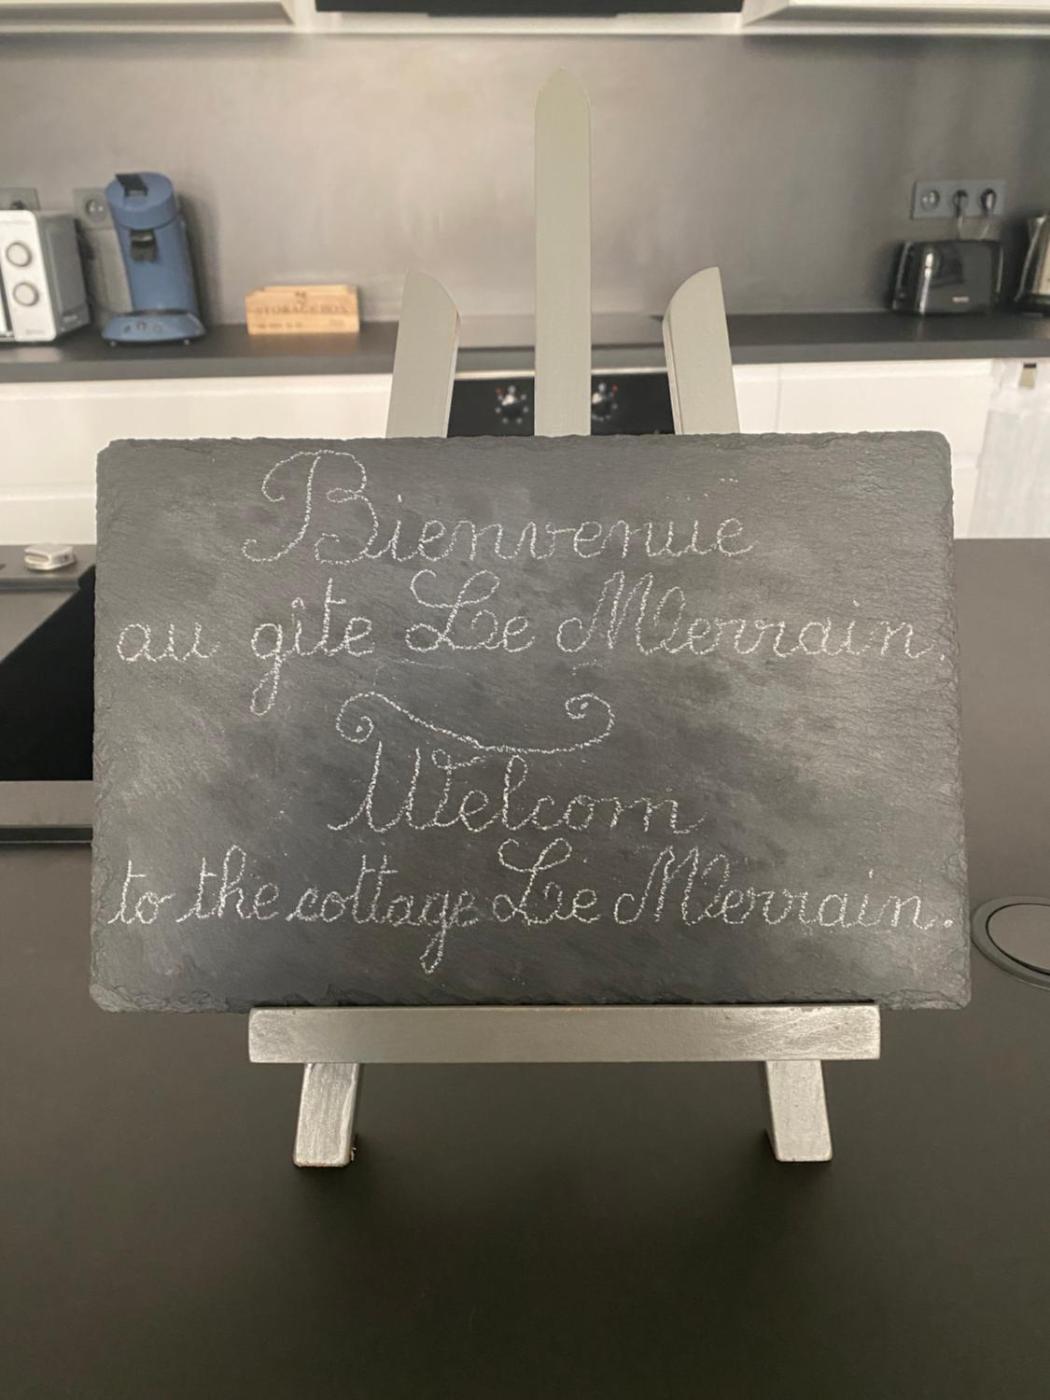 STORAGE BOX
Bienvenuë
au gîte Le Merrain.
Welcom
to the cottage Le Merrain.